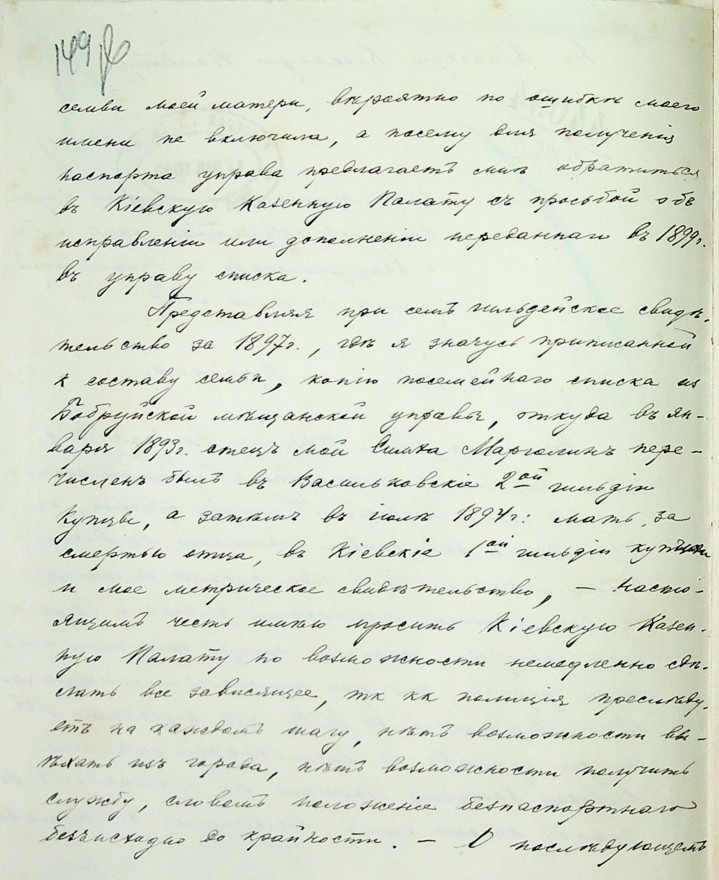 149
семьи моей матери, вѣроятно по ошибкѣ моего
имени не включила, а посему для полученія
паспорта управа предлагаетъ мнѣ обратиться
въ Кіевскую Казенную Палату съ просьбой объ
исправленіи или дополненіи переданнаго въ 1899г.
въ управу списка.
Представляя при семъ гильдейское свидѣ-
тельство за 1897г., гдѣ я значусь приписанной
къ составу семьи, копію посемейнаго списка из
Бобруйской мѣщанской управы, откуда въ ян-
варѣ 1893г. отецъ мой Симха Марголинъ пере-
численъ былъ въ Васильковскіе 2ой гильдіи
купцы, а затѣмъ въ іюлѣ 1894г: мать, за
смертью отца, въ Кіевскіе 1ой гильдіи купчихи
и мое метрическое свидѣтельство, – насто-
ящимъ честь имѣю просить Кіевскую Казен-
ную Палату по возможности немедленно сдѣ-
лать все зависящее, тк кк полиція преслѣду-
етъ на каждомъ шагу, нѣтъ возможности вы-
ѣхать изъ города, нѣтъ возможности получить
службу, словомъ положеніе безпаспортнаго
безъисходно до крайности. – О послѣдующемъ